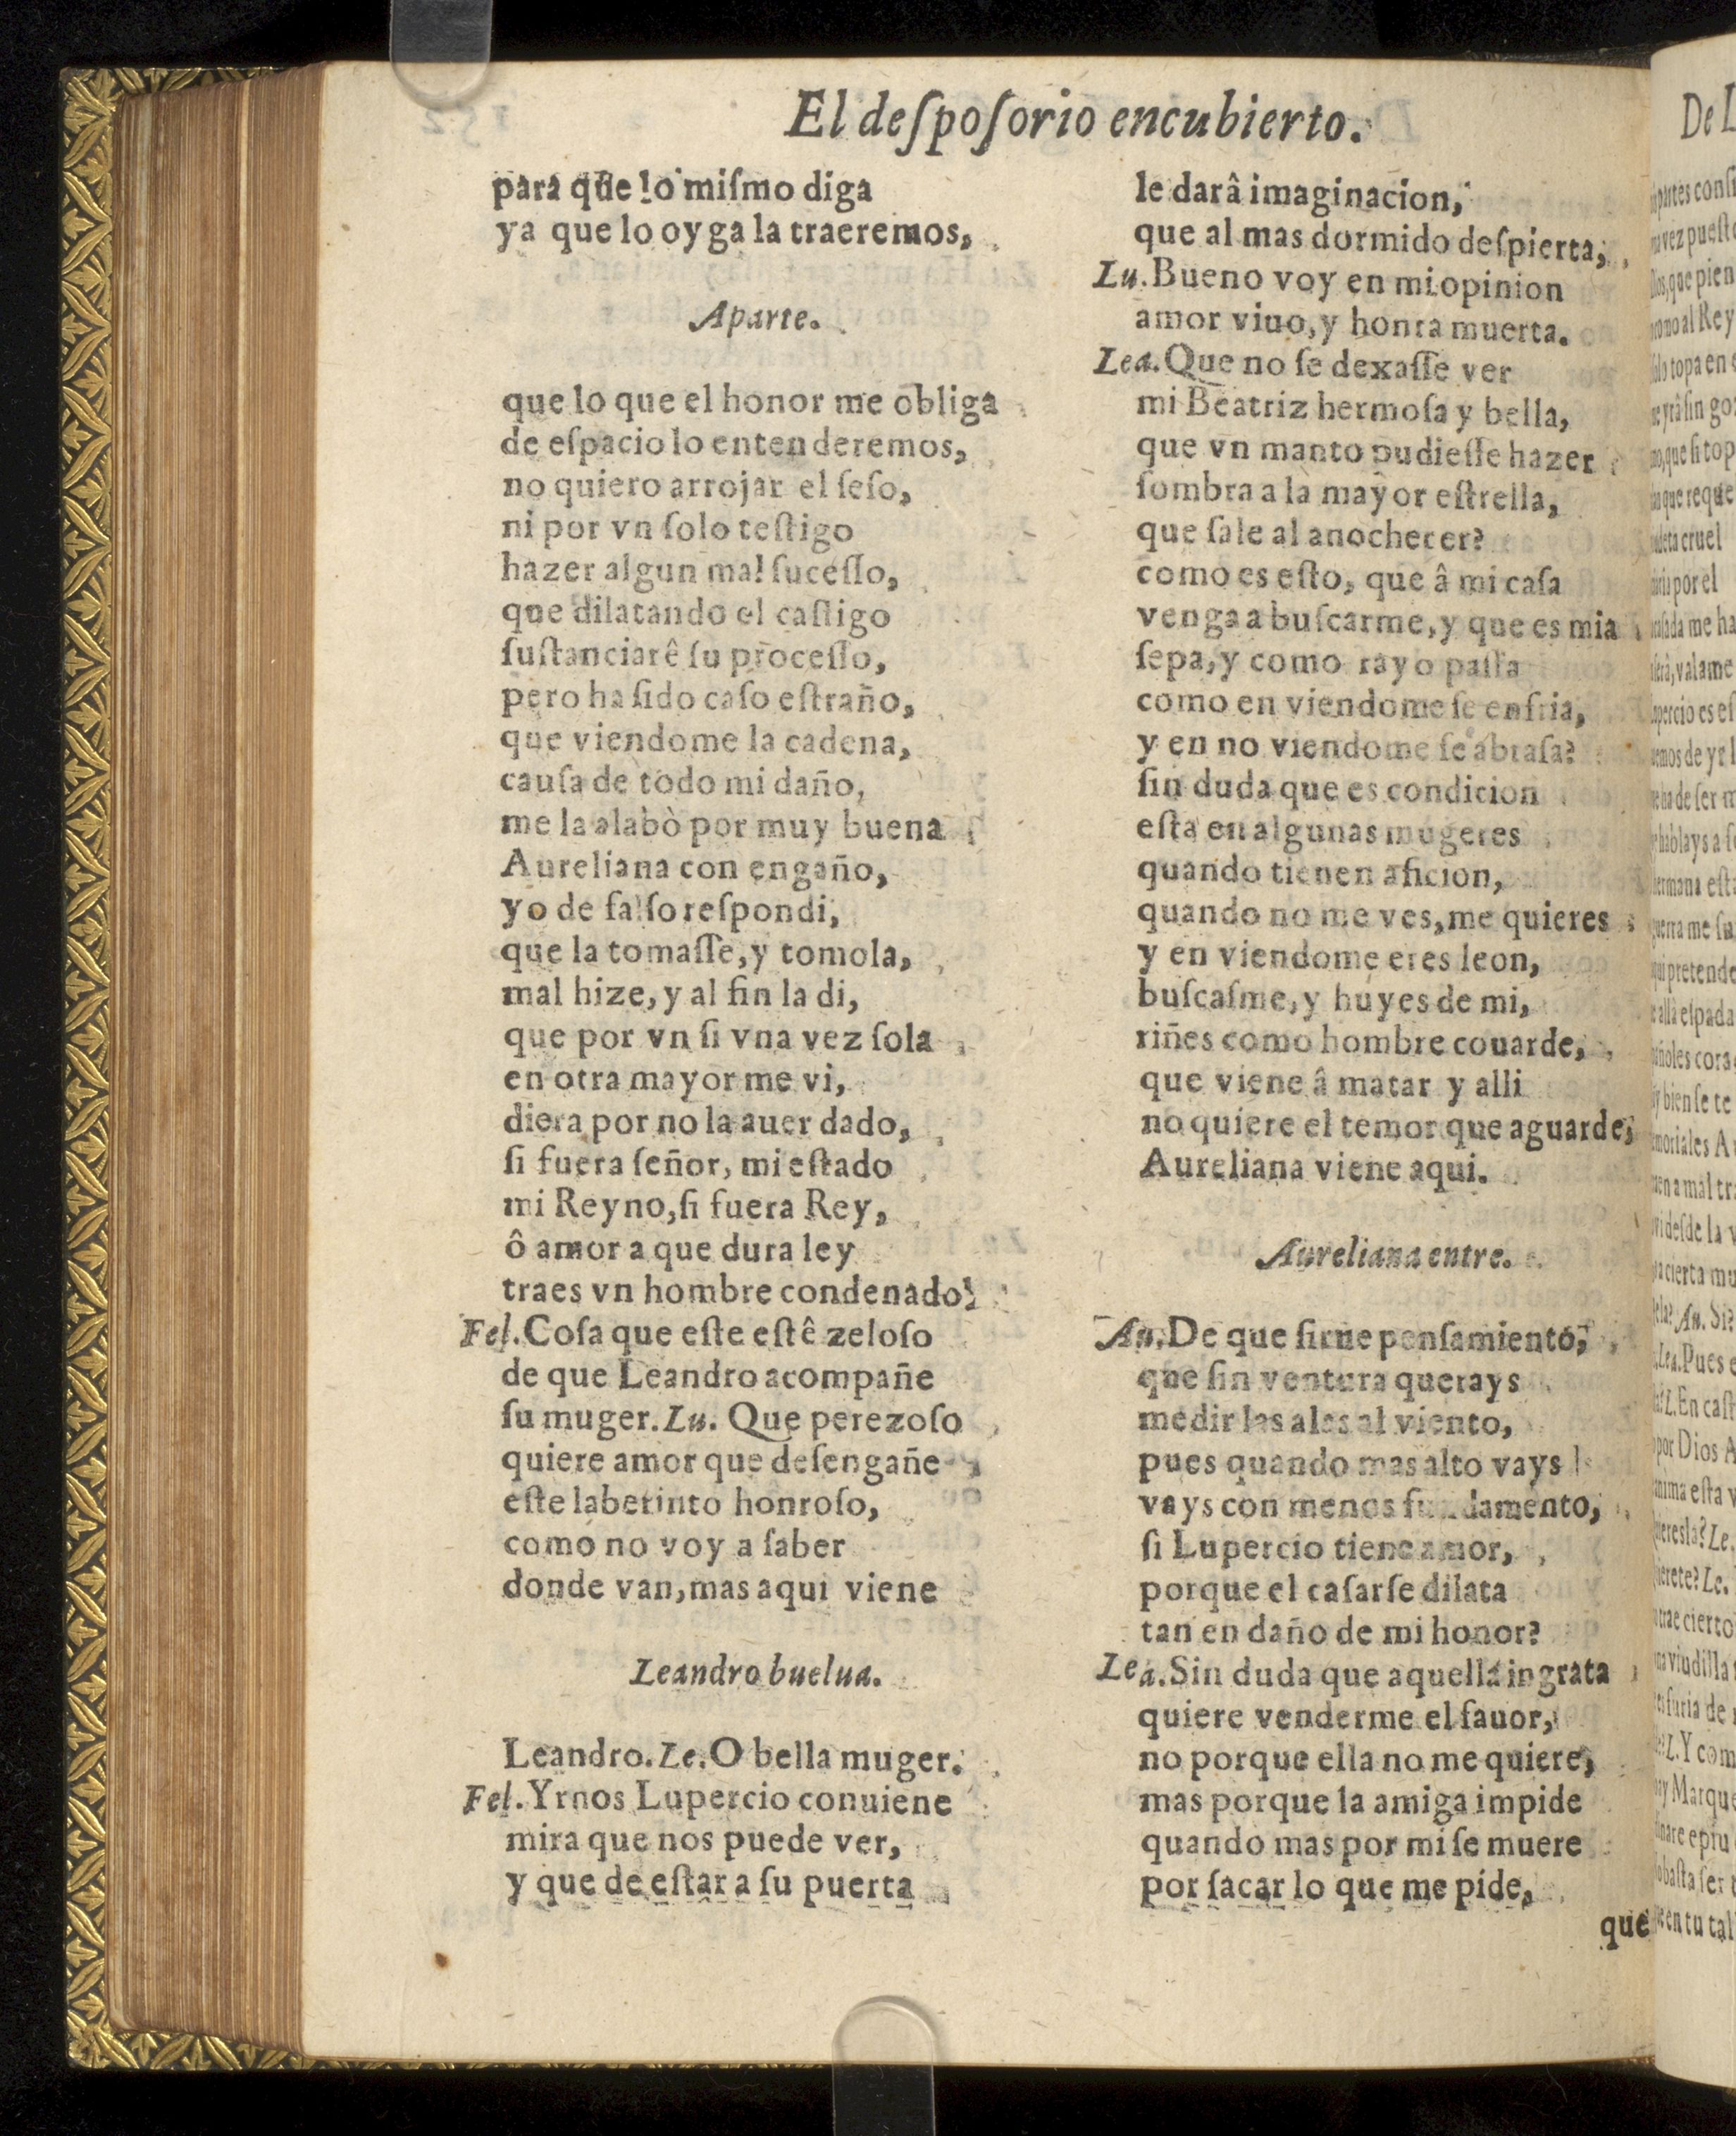 El deſpoſorio encubierto.
para que lo miſmo diga
ya que lo oyga la traeremos,
Aparte.
que lo que el honor me obliga
de eſpacio lo entenderemos,
no quiero arrojar el ſeſo,
ni por vn ſolo teſtigo
hazer algun mal ſuceſſo,
que dilatando el caſtigo
ſuſtanciarê ſu proceſſo,
pero ha ſido caſo eſtraño,
que viendome la cadena,
cauſa de todo mi daño,
me la alabò por muy buena
Aureliana con engaño,
yo de falſo reſpondi,
que la tomaſſe, y tomola,
mal hize, y al fin la di,
que por vn ſi vna vez ſola
en otra mayor me vi,
diera por no la auer dado,
ſi fuera ſeñor, mi eſtado
mi Reyno, ſi fuera Rey,
ô amor a que dura ley
traes vn hombre condenado!
Fel. Coſa que eſte eſtê zeloſo
de que Leandro acompañe
ſu muger. Lu. Que perezoſo
quiere amor que deſengañe
eſte laberinto honroſo,
como no voy a ſaber
donde van, mas aqui viene
Leandro buelua.
Leandro. Le. O bella muger.
Fel. Yrnos Lupercio conuiene
mira que nos puede ver,
y que de eſtar a ſu puerta
le darâ imaginacion,
que al mas dormido deſpierta,
Lu. Bueno voy en mi opinion
amor viuo, y honra muerta.
Lea. Que no ſe dexaſſe ver
mi Beatriz hermoſa y bella,
que vn manto pudieſſe hazer
ſombra a la mayor eſtrella,
que ſale al anochecer?
como es eſto, que â mi caſa
venga a buſcarme, y que es mia
ſepa, y como rayo paſſa
como en viendome ſe enfria,
y en no viendome ſe abraſa?
ſin duda que es condicion
eſta en algunas mugeres
quando tienen aficion,
quando no me ves, me quieres
y en viendome eres leon,
buſcaſme, y huyes de mi,
riñes como hombre couarde,
que viene â matar y alli
no quiere el temor que aguarde,
Aureliana viene aqui.
Aureliana entre.
Au. De que ſirue penſamiento,
que ſin ventura querays
medir las alas al viento,
pues quando mas alto vays
vays con menos fundamento,
ſi Lupercio tiene amor,
porque el caſarſe dilata
tan en daño de mi honor?
Lea. Sin duda que aquella ingrata
quiere venderme el fauor,
no porque ella no me quiere,
mas porque la amiga impide
quando mas por mi ſe muere
por ſacar lo que me pide,
que